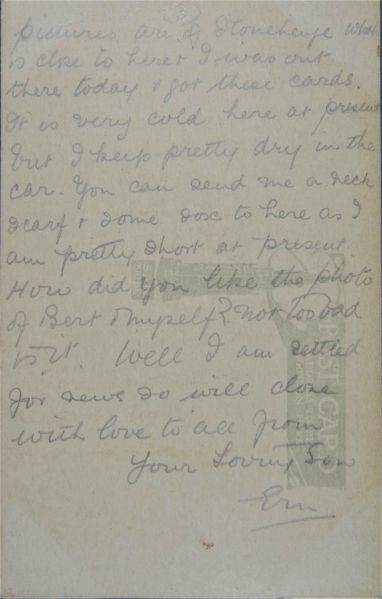 pictures are of Stonehenge which
is close to here & I was out
there today & got these cards.
It is very cold here at present
but I keep pretty dry in the
car. You can send me a neck
scarf & some sox to here as I
am pretty short at present.
How did you like the photo
of Bert & myself? not too bad
is it. Well I am settled
for news so will close
with love to all from
Your Loving Son
Ern
POST CARD